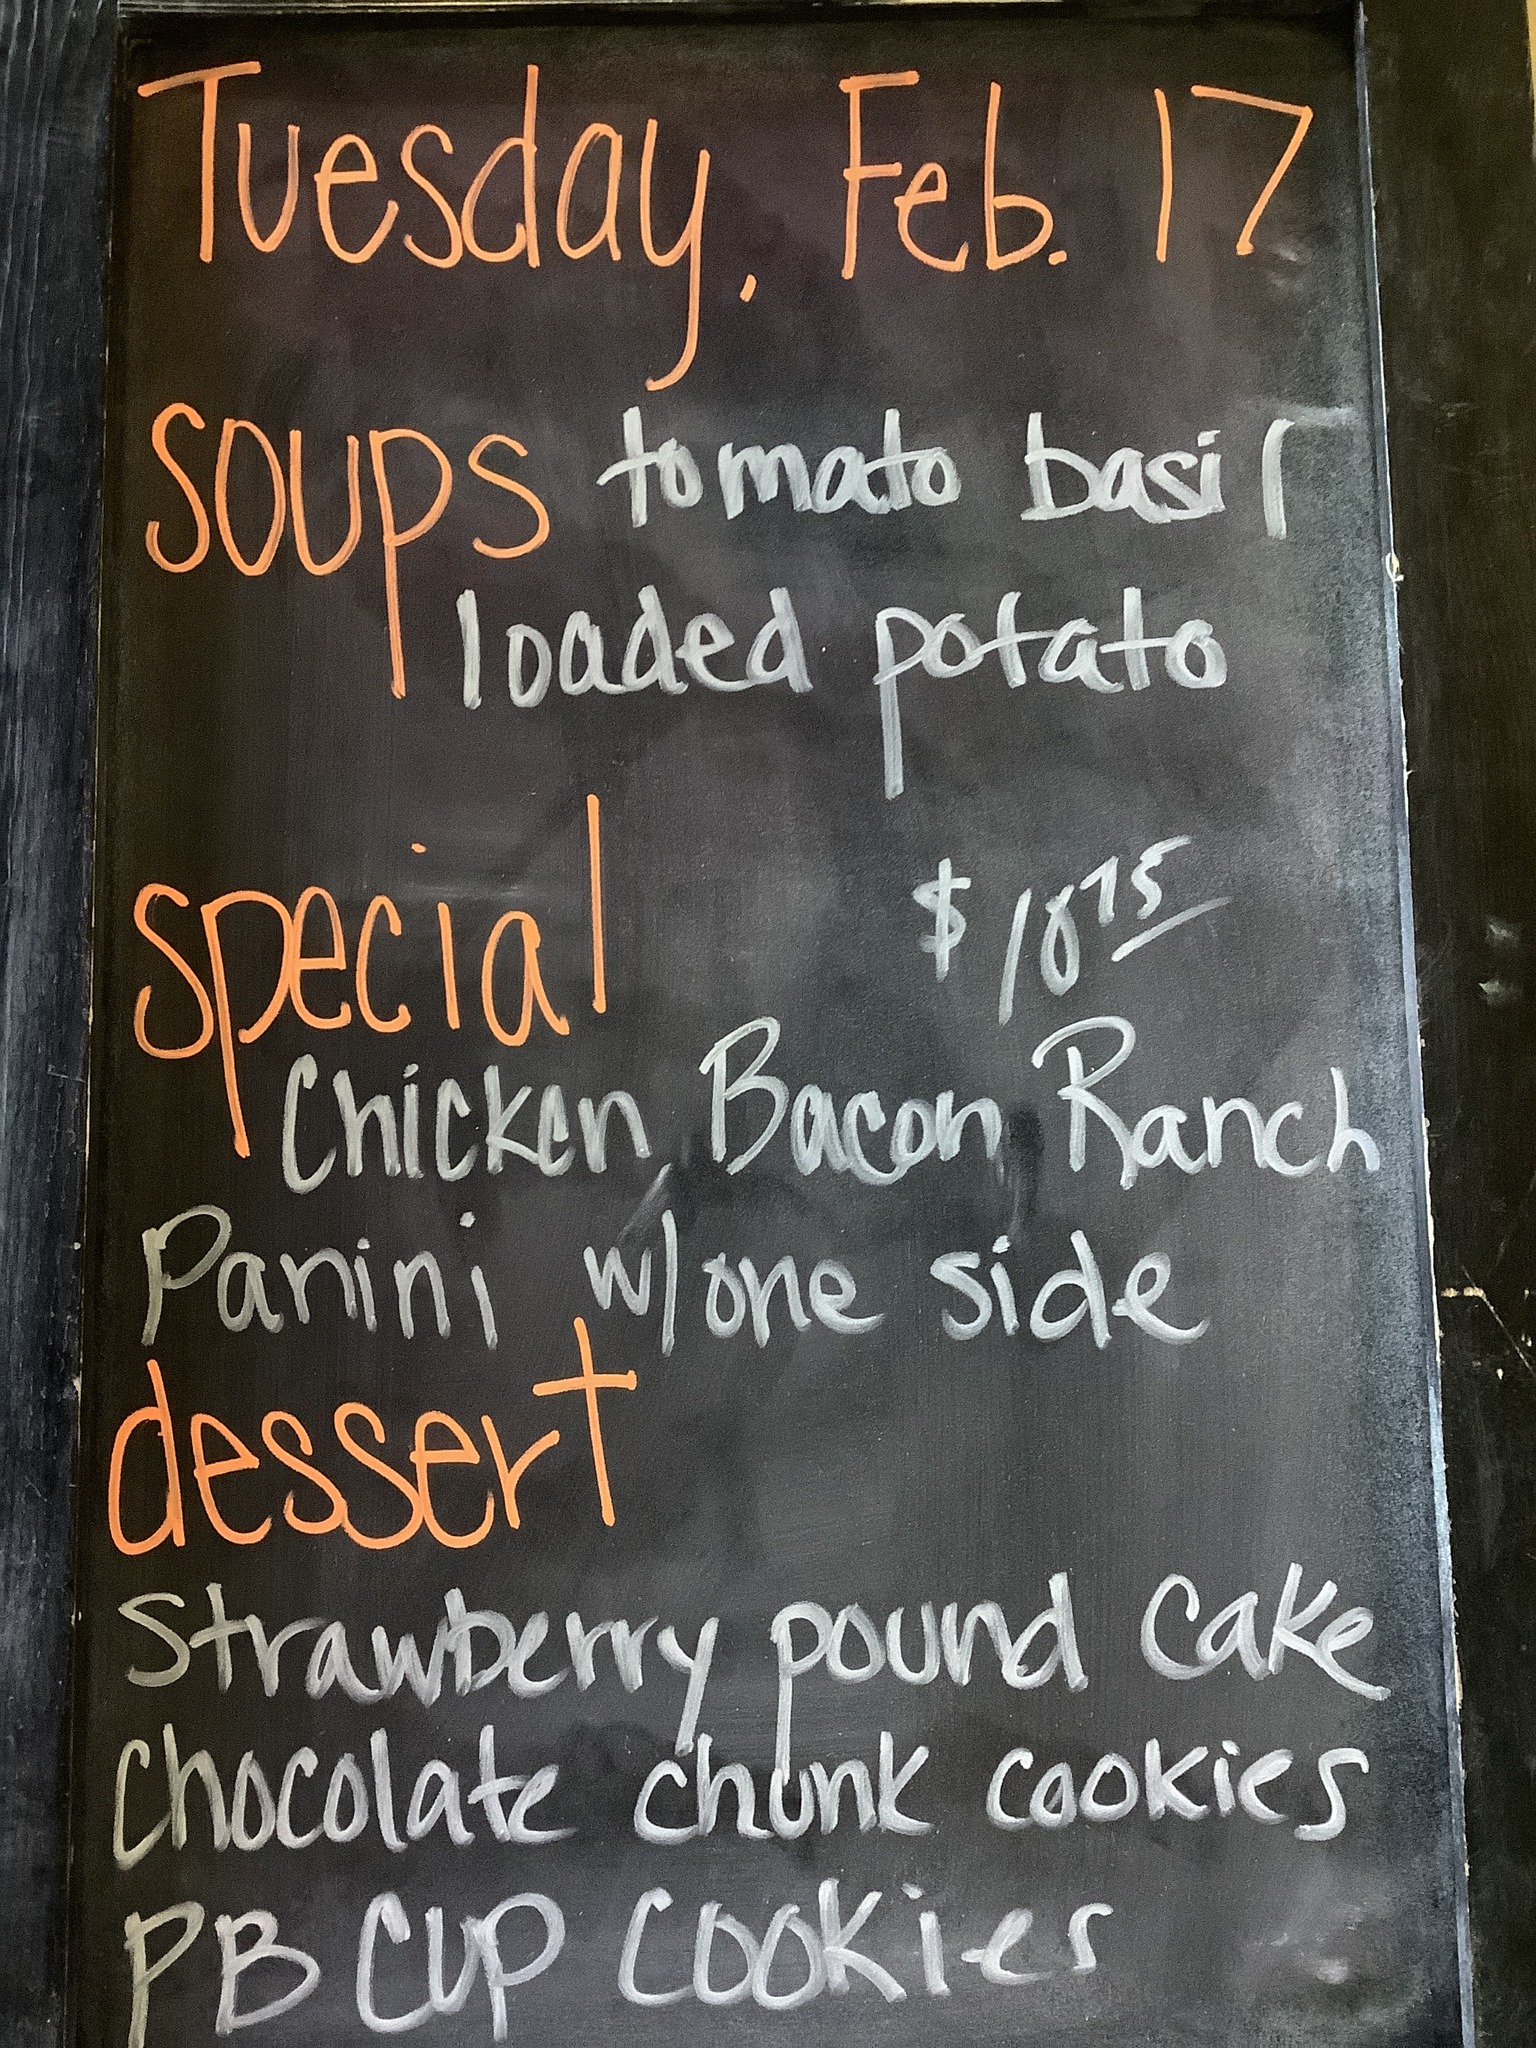 Tuesday, Feb. 17
soups tomato basil
loaded potato
special $10.75
Chicken Bacon Ranch
Panini w/one side
dessert
Strawberry pound cake
chocolate chunk cookies
PB CUP COOKies